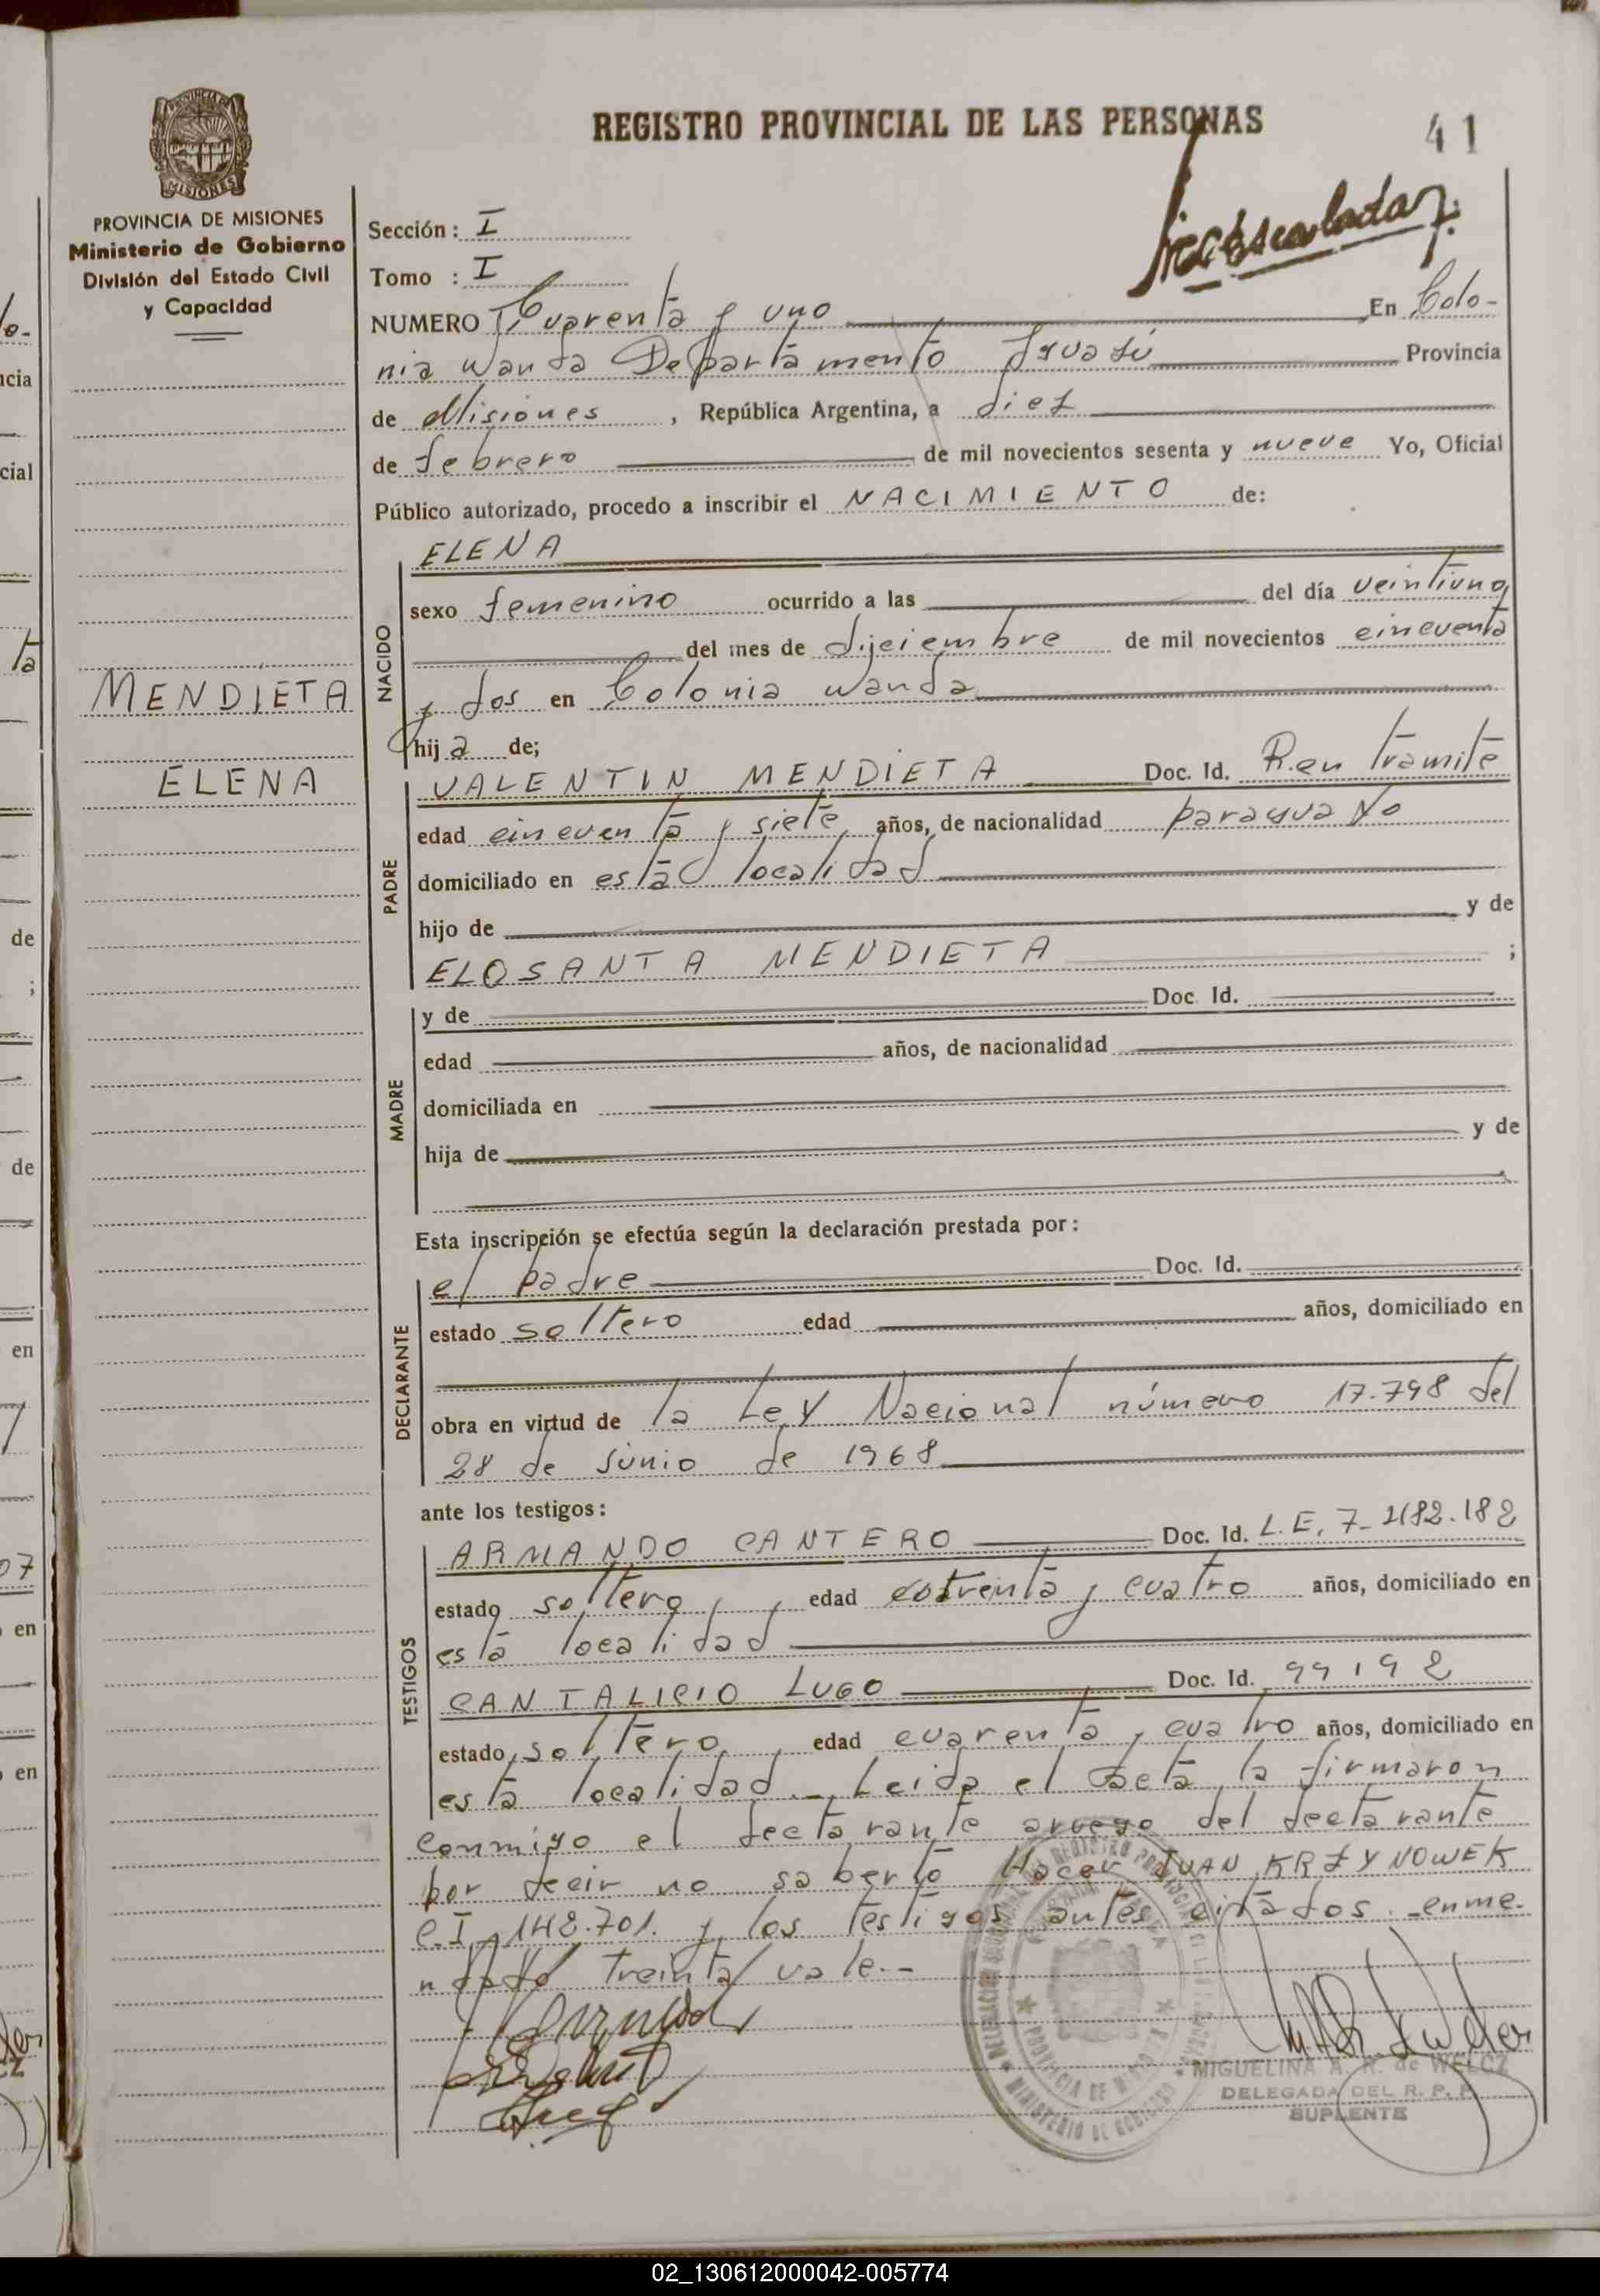 REGISTRO PROVINCIAL DE LAS PERSONAS
41
PROVINCIA DE MISIONES
Ministerio de Gobierno
División del Estado Civil
y Capacidad
MENDIETA
ELENA
Sección: I
Tomo : I
NUMERO Cuarenta y uno En Colo-
nia Wanda Departamento Iguazú Provincia
de Misiones, República Argentina, a diez
de febrero de mil novecientos sesenta y nueve Yo, Oficial
Público autorizado, procedo a inscribir el NACIMIENTO de:
NACIDO
ELENA
sexo femenino ocurrido a las del día veintiuno
del mes de dijciembre de mil novecientos cincuenta
y dos en Colonia Wanda
hija de;
PADRE
VALENTIN MENDIETA Doc. Id. R. en tramite
edad cincuenta y siete años, de nacionalidad paraguayo
domiciliado en esta localidad
hijo de y de
ELOSANTA MENDIETA ;
MADRE
y de Doc. Id.
edad años, de nacionalidad
domiciliada en
hija de y de
Esta inscripción se efectúa según la declaración prestada por:
DECLARANTE
el padre Doc. Id.
estado soltero edad años, domiciliado en
obra en virtud de la Ley Nacional número 17.798 del
28 de junio de 1968
ante los testigos:
TESTIGOS
ARMANDO CANTERO Doc. Id. L.E. 7-482.182
estado soltero, edad treinta y cuatro años, domiciliado en
esta localidad
CANTALICIO LUGO Doc. Id. 99192
estado soltero, edad cuarenta y cuatro años, domiciliado en
esta localidad.- Leida el acta, la firmaron
conmigo el declarante aruego del declarante
por decir no saberlo hacer JUAN KRZYNOWEK
C.I. 148.701. y los testigos antes citados. -enme-
ndado treinta vale.-
MIGUELINA A. R. de WELCZ
DELEGADA DEL R. P. P.
SUPLENTE
PROVINCIA DE MISIONES
MINISTERIO DE GOBIERNO
02_130612000042-005774